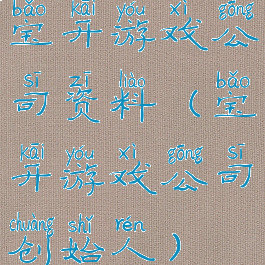 bǎo kāi yóu xì gōng
宝开游戏公
sī zī liào bǎo
司资料（宝
kāi yóu xì gōng sī
开游戏公司
chuàng shǐ rén
创始人）